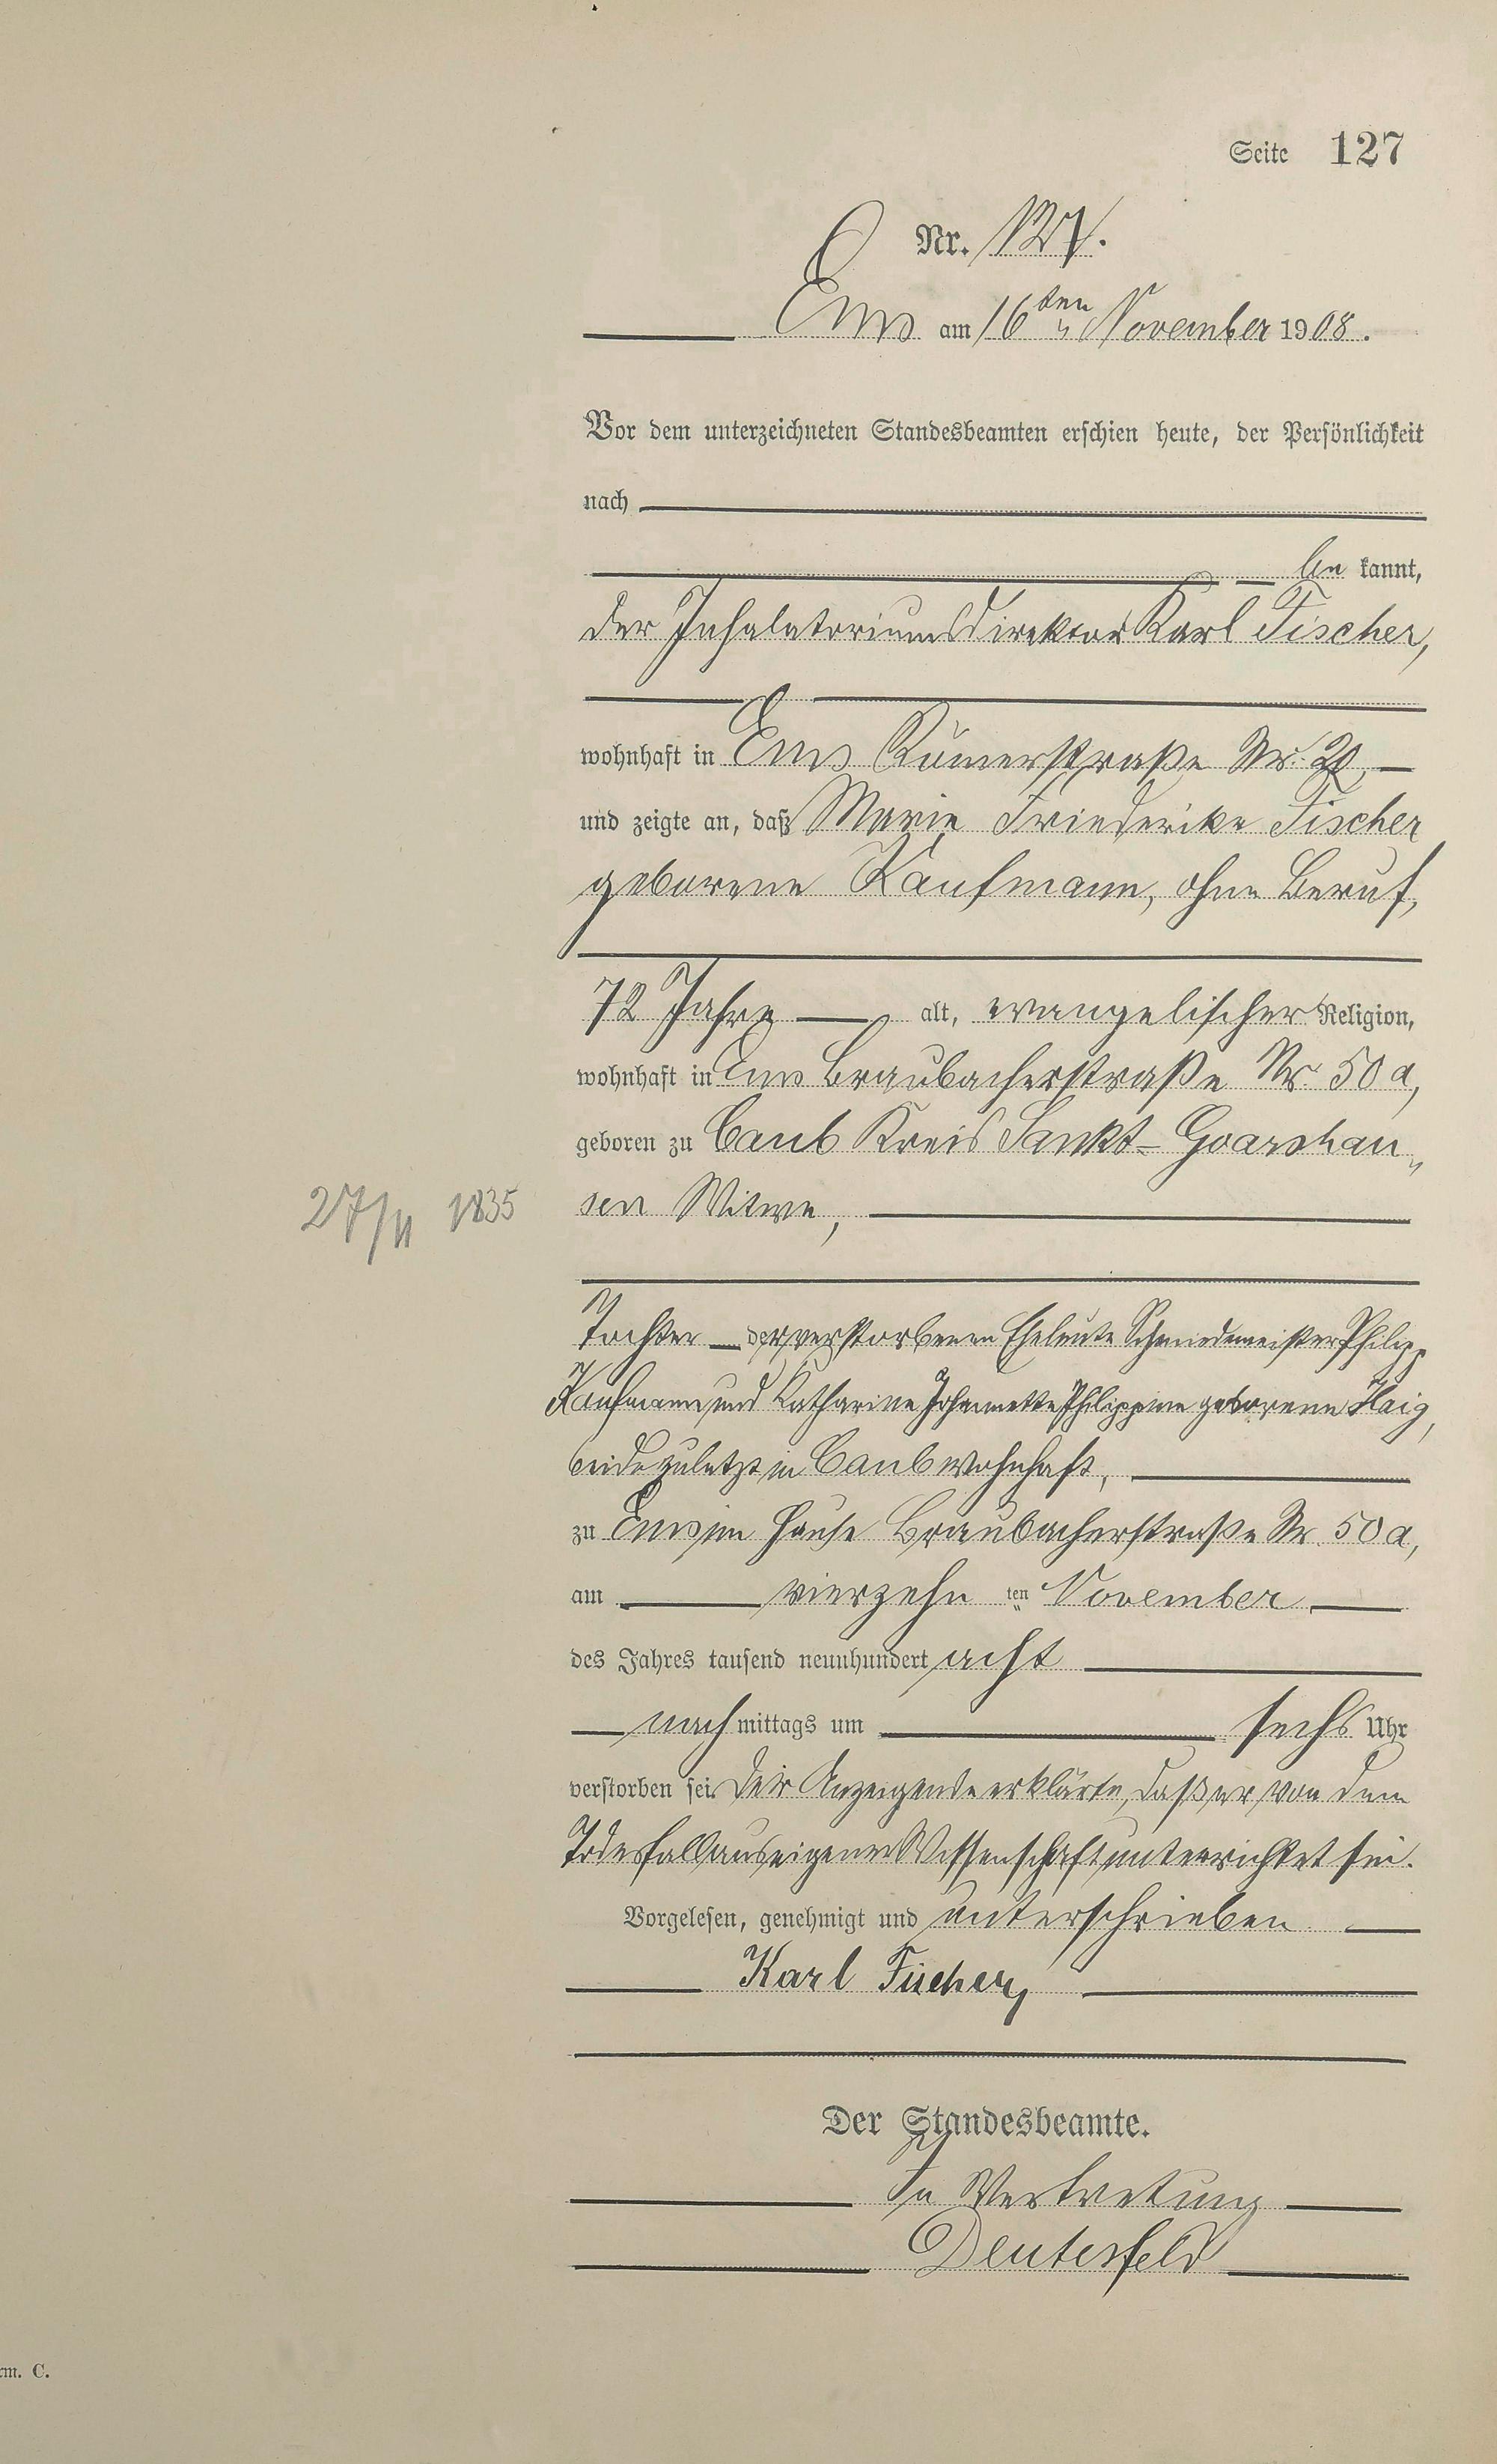 Seite 127
Nr. 127.
Ems am 16ten November 1908.
Vor dem unterzeichneten Standesbeamten erschien heute, der Persönlichkeit
nach
be kannt,
der Inhalatoriumsdirektor Karl Fischer,
wohnhaft in Ems Römerstraße Nr. 20
und zeigte an, daß Marie Friederike Fischer
geborene Kaufmann, ohne Beruf,
72 Jahre alt, evangelischer Religion,
wohnhaft in Ems Braubacherstraße Nr. 50a,
geboren zu Caub Kreis Sankt-Goarshau„
27/11 1835
sen Witwe,
Tochter der verstorbenen Eheleute Schmiedemeister Philipp
Kaufmann und Katharine Johannette Philippine geborene
beide zuletzt in Caub wohnhaft,
zu Ems im Hause Braubacherstraße Nr. 50a,
am vierzehn ten November
des Jahres tausend neunhundert acht
nach mittags um sechs Uhr
verstorben sei. Der Anzeigende erklärte, daß er von dem
Todesfall aus eigener Wissenschaft unterrichtet sei.
Vorgelesen, genehmigt und unterschrieben
Karl Fischer,
Der Standesbeamte.
In Vertretung
Deutesfeld
rm. C.